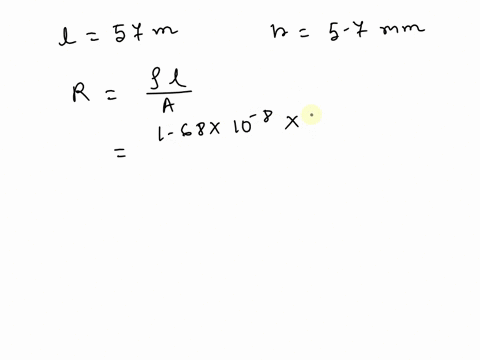 l = 57 m    r = 5.7 mm
R = ρl / A
= 1.68 × 10⁻⁸ ×